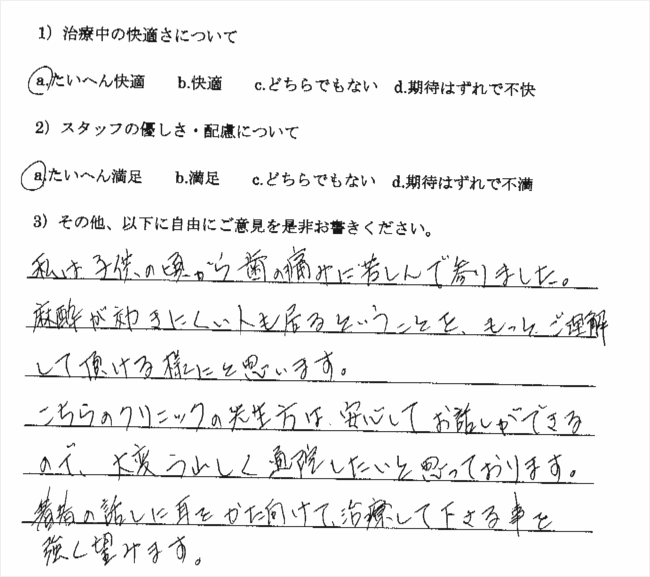 1）治療中の快適さについて
a.たいへん快適 b.快適 c.どちらでもない d.期待はずれで不快
2）スタッフの優しさ・配慮について
a.たいへん満足 b.満足 c.どちらでもない d.期待はずれで不満
3）その他、以下に自由にご意見を是非お書きください。
私は子供の頃から歯の痛みに苦しんで参りました。
麻酔が効きにくい人も居るということを、もっとご理解
して頂ける様にと思います。
こちらのクリニックの先生方は、安心してお話しができる
ので、大変うれしく通院したいと思っております。
患者の話しに耳をかた向けて、治療して下さる事を
強く望みます。